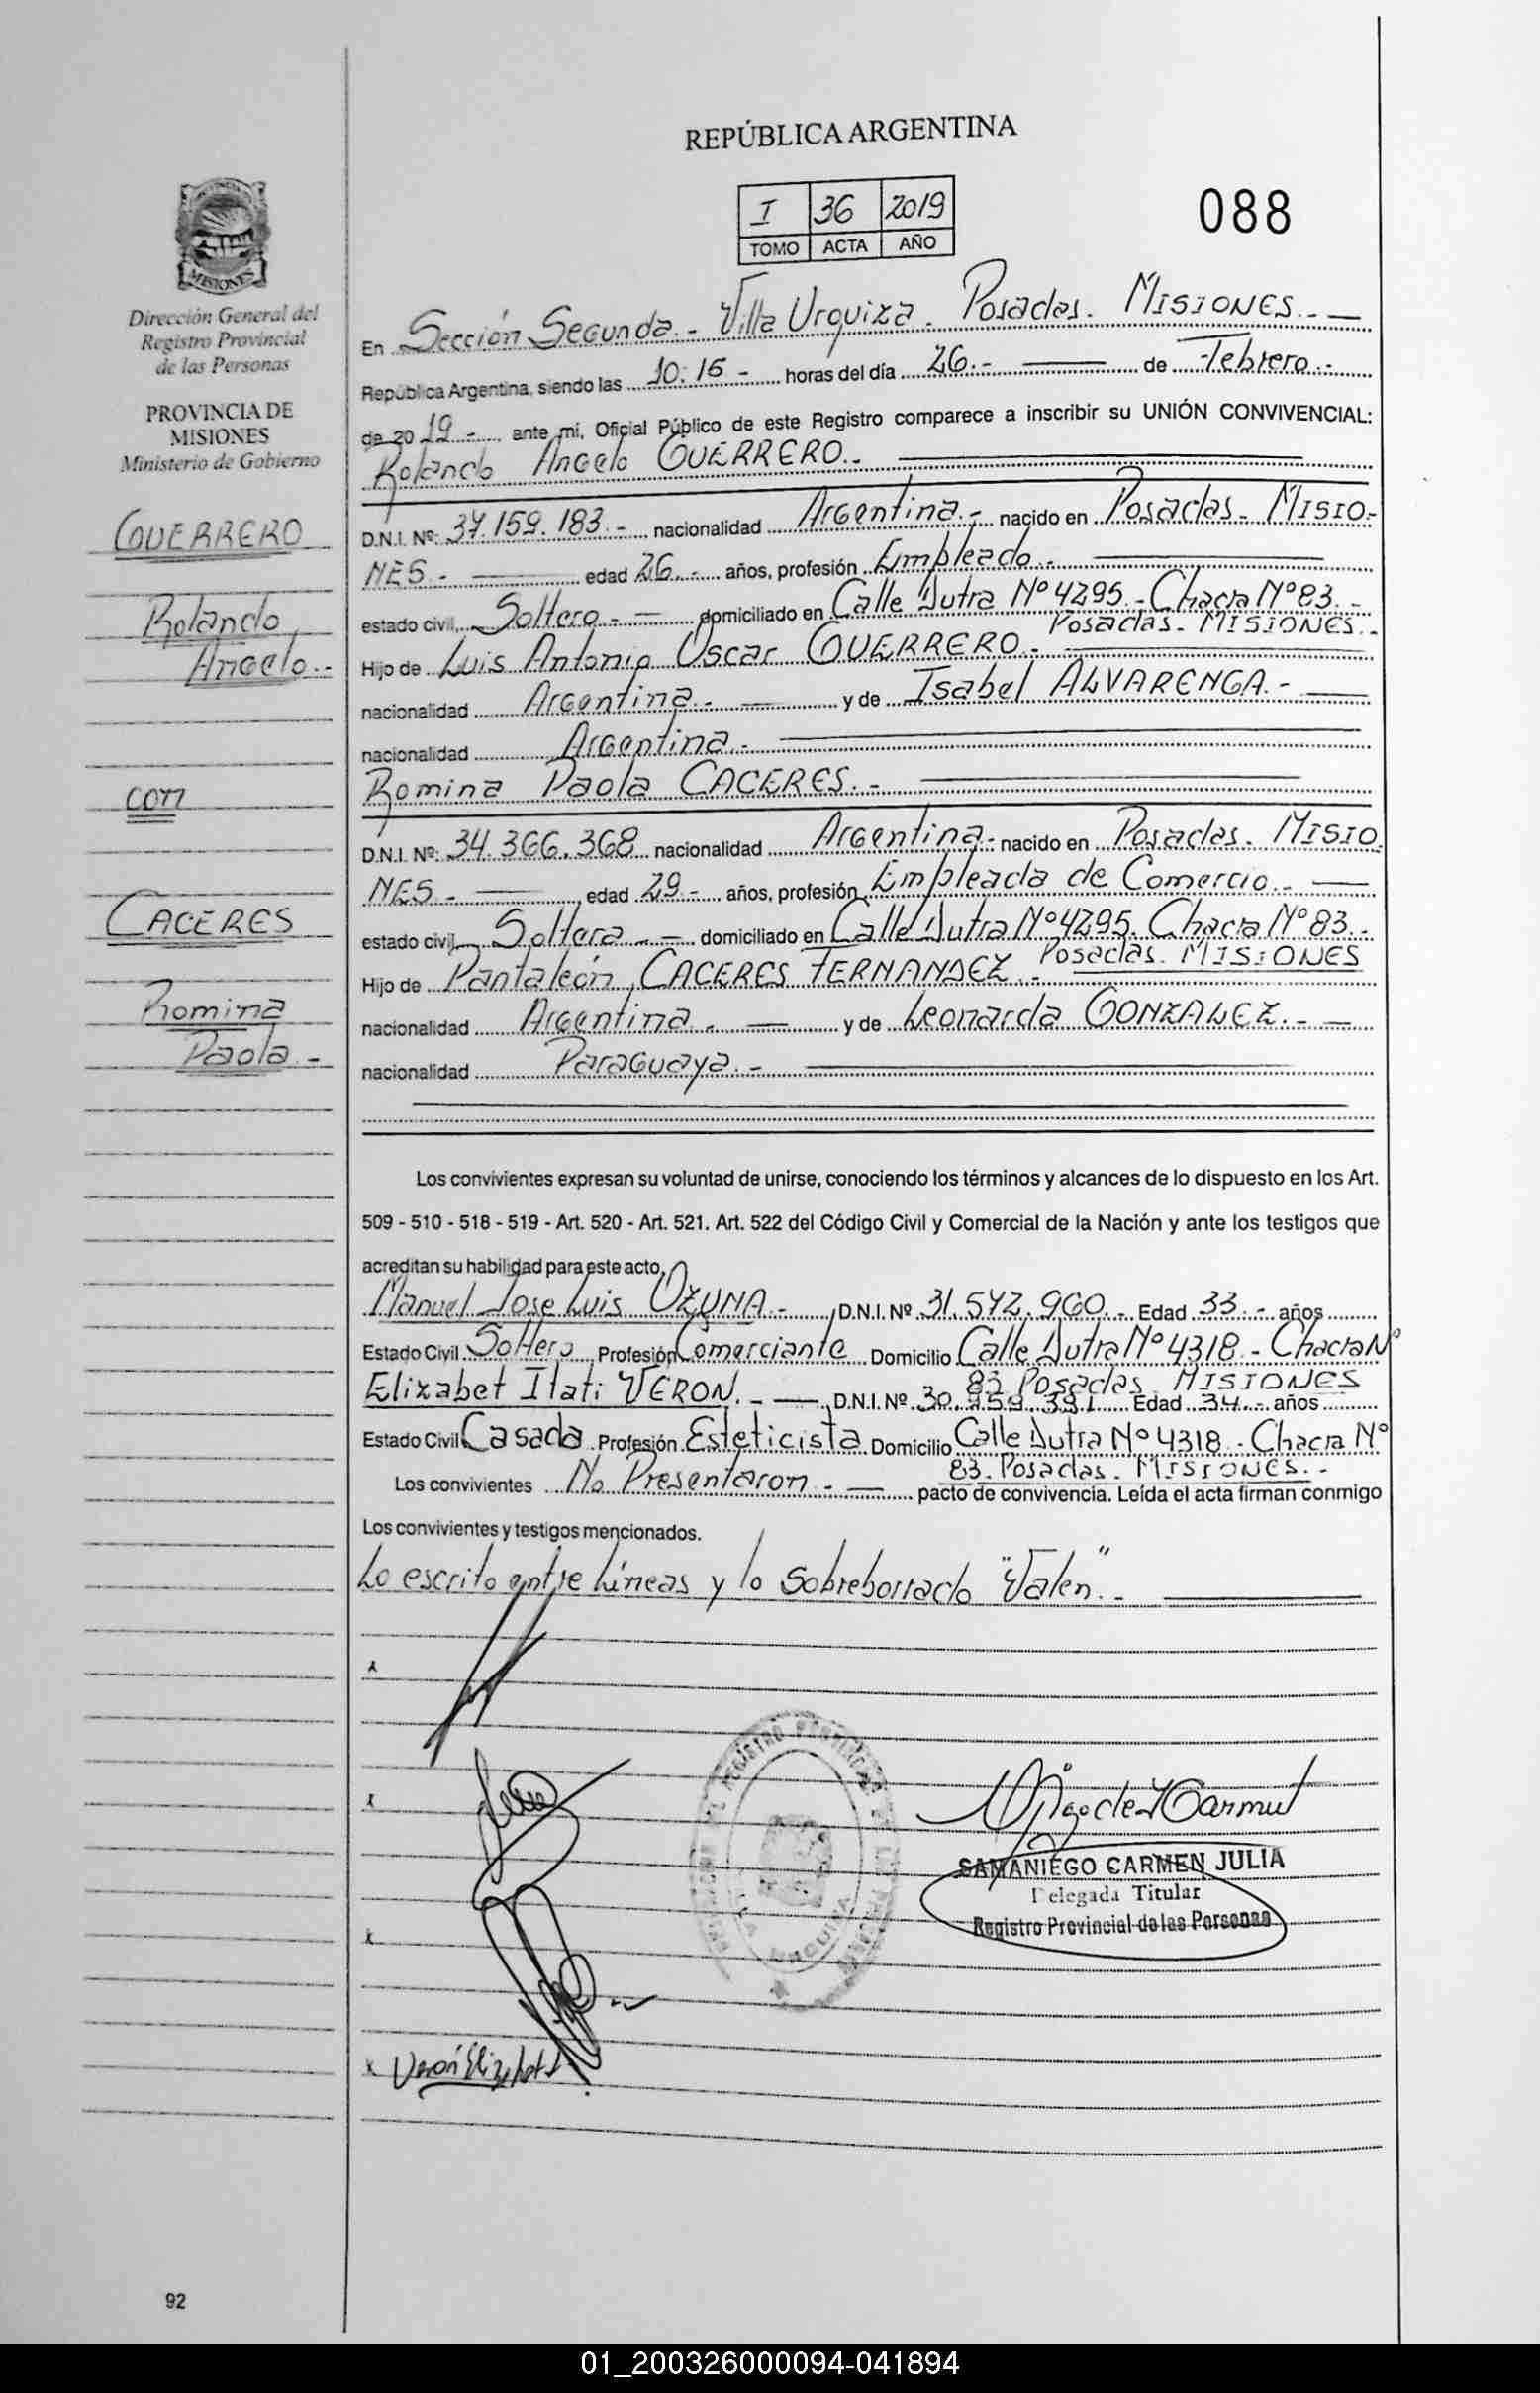 REPÚBLICA ARGENTINA
I 36 2019
TOMO ACTA AÑO
088
PROVINCIA DE
MISIONES
Dirección General del
Registro Provincial
de las Personas
PROVINCIA DE
MISIONES
Ministerio de Gobierno
GUERRERO
Rolando
Angelo.-
con
CACERES
Romina
Paola.-
En Sección Segunda.- Villa Urquiza. Posadas. MISIONES.-
República Argentina, siendo las 10:15 - horas del día 26.- de Febrero.-
de 2019 - ante mi, Oficial Público de este Registro comparece a inscribir su UNIÓN CONVIVENCIAL:
Rolando Angelo GUERRERO.-
D.N.I. Nº: 37.159.183.- nacionalidad Argentina.- nacido en Posadas- MISIO-
NES.- edad 26.- años, profesión Empleado.-
estado civil Soltero.- domiciliado en Calle Dutra Nº 4295.- Chacra Nº 83.-
Posadas- MISIONES.-
Hijo de Luis Antonio Oscar GUERRERO.-
nacionalidad Argentina.- y de Isabel ALVARENGA.-
nacionalidad Argentina.-
Romina Paola CACERES.-
D.N.I. Nº: 34.366.368 nacionalidad Argentina.- nacido en Posadas. MISIO
NES.- edad 29.- años, profesión Empleada de Comercio.-
estado civil Soltera.- domiciliado en Calle Dutra Nº 4295. Chacra Nº 83.-
Posadas. MISIONES
Hijo de Pantaleón CACERES FERNANDEZ.-
nacionalidad Argentina.- y de Leonarda GONZALEZ.-
nacionalidad Paraguaya.-
Los convivientes expresan su voluntad de unirse, conociendo los términos y alcances de lo dispuesto en los Art.
509 - 510 - 518 - 519 - Art. 520 - Art. 521. Art. 522 del Código Civil y Comercial de la Nación y ante los testigos que
acreditan su habilidad para este acto,
Manuel Jose Luis OZUNA.- D.N.I. Nº 31.572.960.- Edad 33.- años
Estado Civil Soltero Profesión Comerciante Domicilio Calle Dutra Nº 4318.- Chacra Nº
83 Posadas MISIONES
Elizabet Itati VERON.- D.N.I. Nº 30.959.391 Edad 34.- años
Estado Civil Casada Profesión Esteticista Domicilio Calle Dutra Nº 4318.- Chacra Nº
83. Posadas. MISIONES.-
Los convivientes No Presentaron.- pacto de convivencia. Leída el acta firman conmigo
Los convivientes y testigos mencionados.
Lo escrito entre líneas y lo sobreborrado "Valen".-
x
x
x
x Verón Elizabet I
SAMANIEGO CARMEN JULIA
Delegada Titular
Registro Provincial de las Personas
VILLA URQUIZA
92
01_200326000094-041894